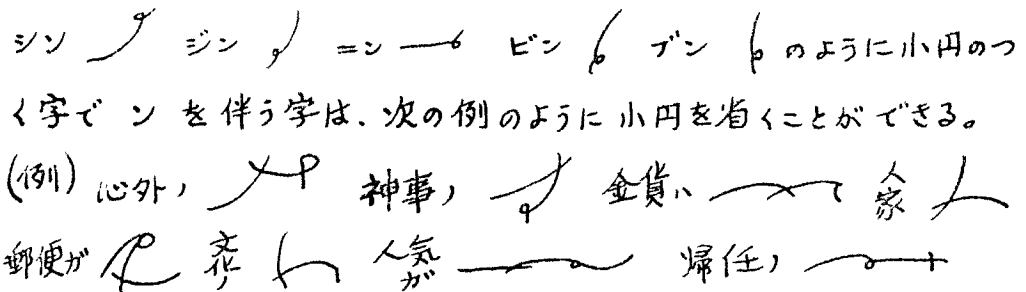 シン ジン ニン ビン ブン のように小円のつ
く字で ン を伴う字は、次の例のように小円を省くことができる。
(例) 心外、 神事、 金貨、 人家
郵便が 文化 人気が 帰任、